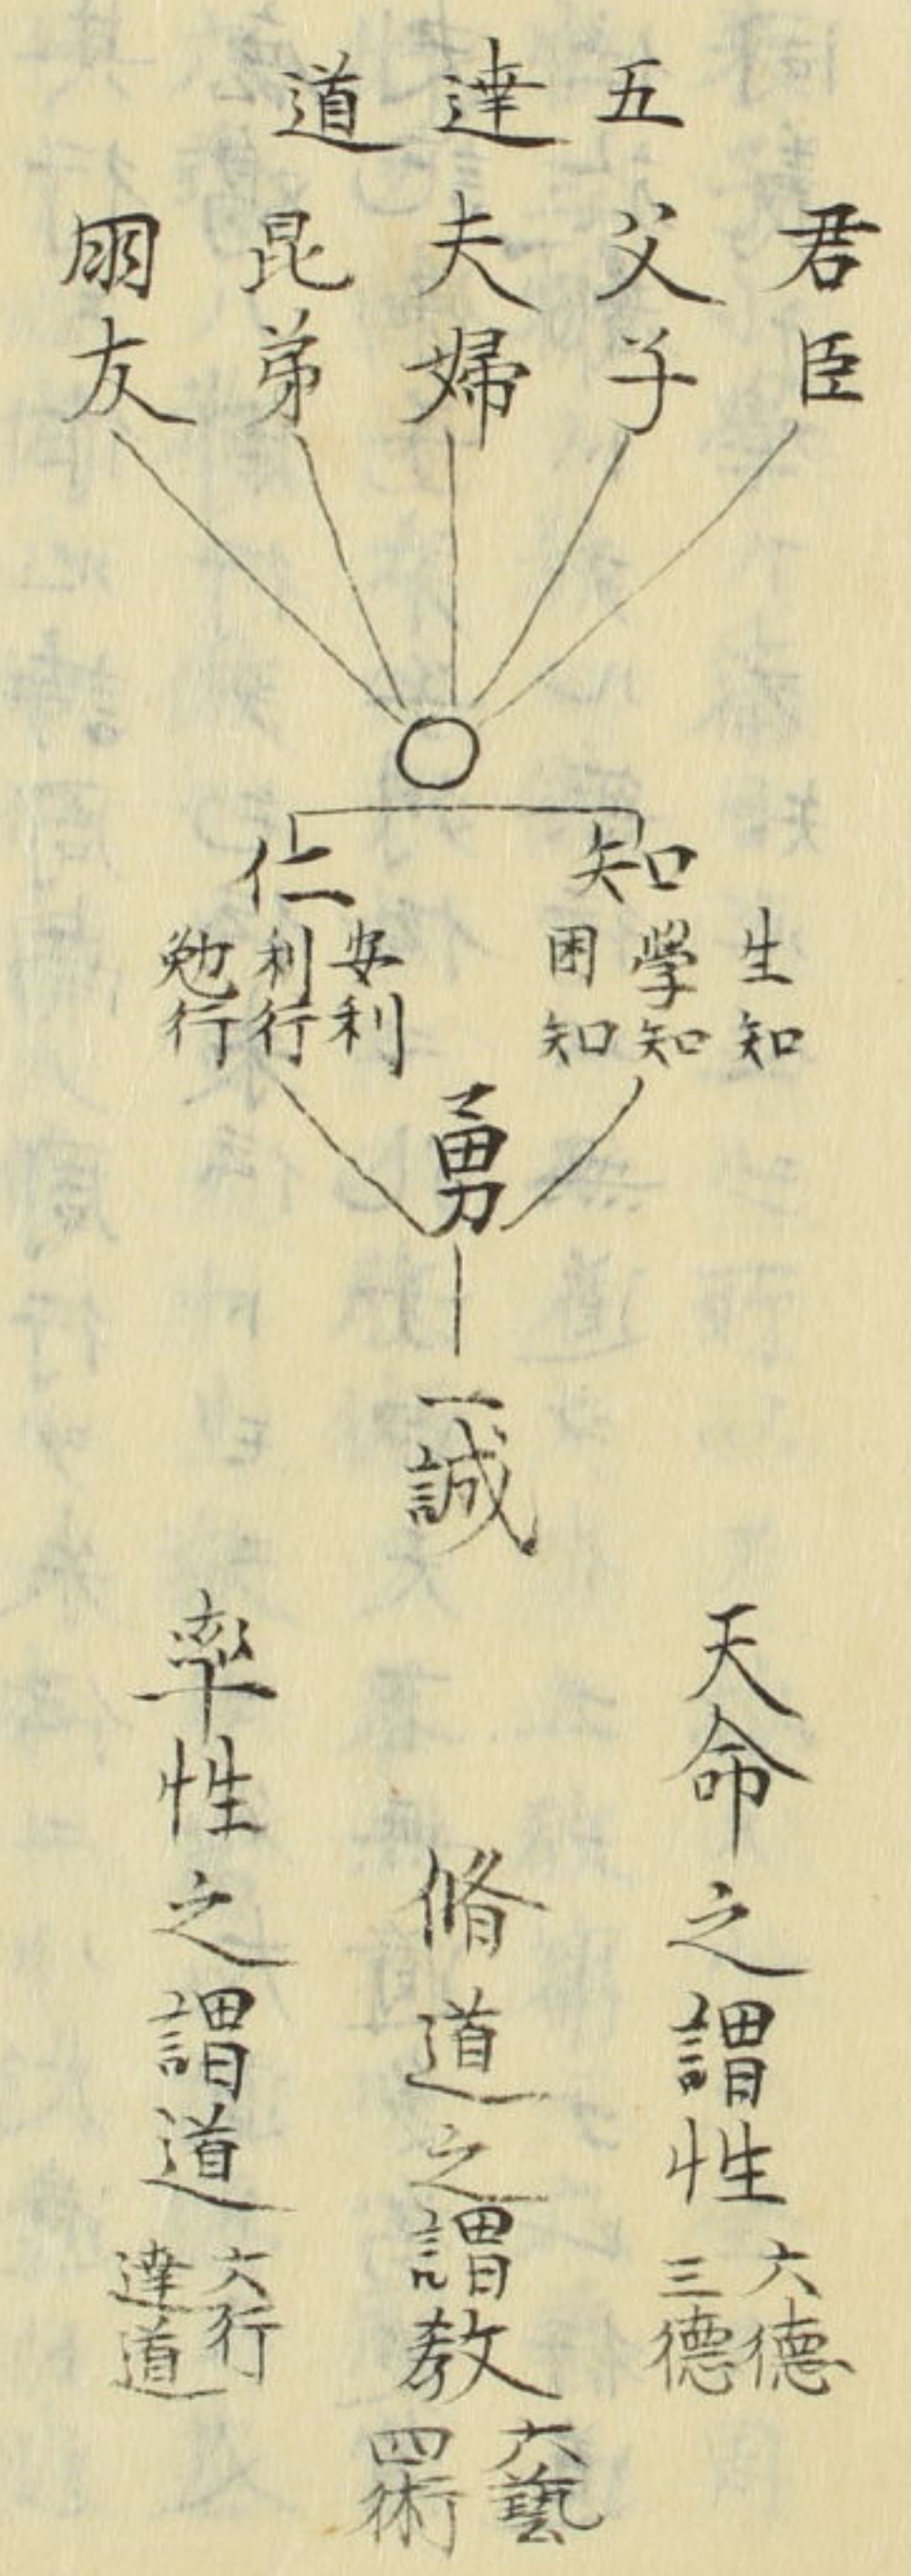 五達道
君臣
父子
夫婦
昆弟
朋友
知
生知
學知
困知
仁
安利
利行
勉行
勇
一誠
天命之謂性
六德
三德
脩道之謂教
六藝
四術
率性之謂道
六行
達道